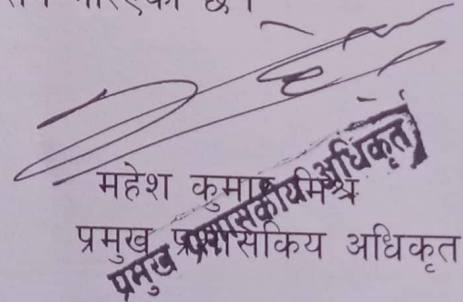 छ।
महेश कुमार मिश्र
प्रमुख प्रशासकिय अधिकृत
प्रमुख प्रशासकीय अधिकृत